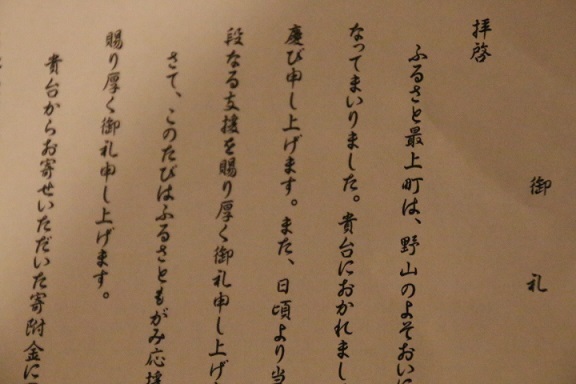 御礼
拝啓
ふるさと最上町は、野山のよそおいに
なってまいりました。貴台におかれまし
慶び申し上げます。また、日頃より当
段なる支援を賜り厚く御礼申し上げ
さて、このたびはふるさともがみ応援
賜り厚く御礼申し上げます。
貴台からお寄せいただいた寄附金に